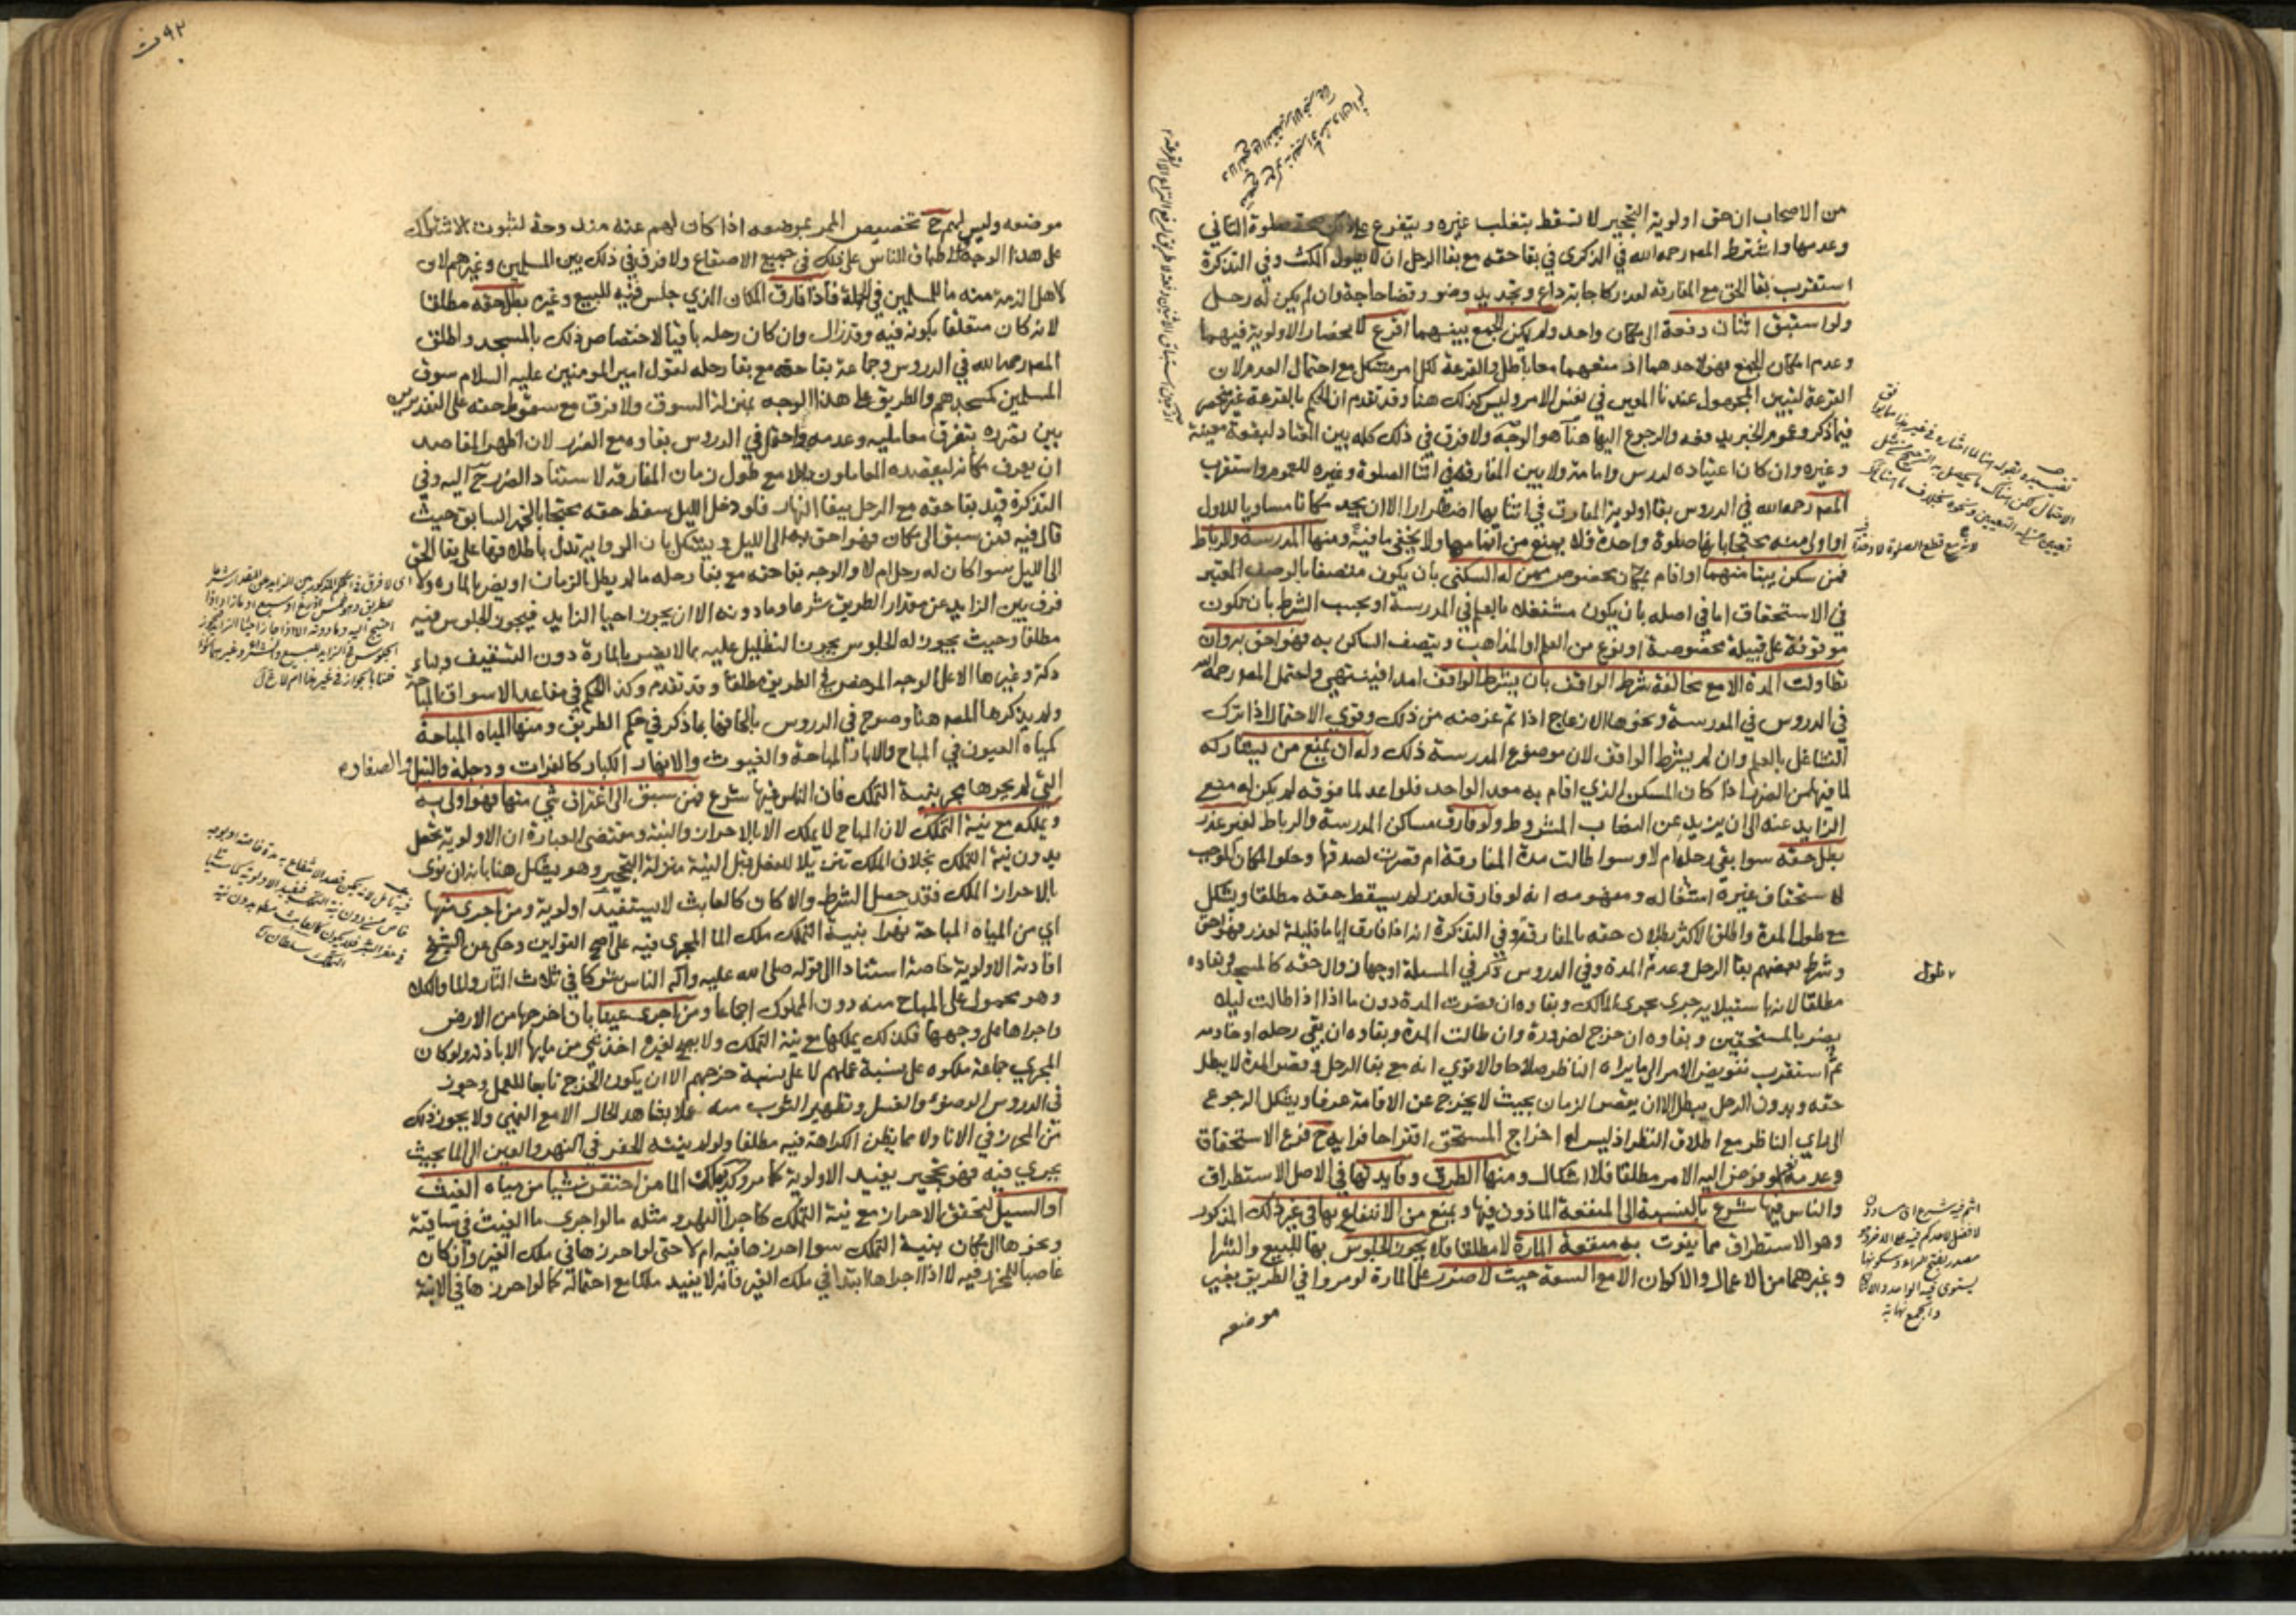 من الاصحاب ان حق اولوية التحجير لا تسقط بتغلب غيره ويتفرع على ذلك صحة صلوة الثاني
وعدمها واشترط المصـ رحمه الله في الذكرى في بقا حقه مع بقا الرحل ان لا يطول المكث وفي التذكرة
استقرب بقا الحق مع المفارقة لعذر كاجابة داع وتجديد وضو وقضا حاجة وان لم يكن له رحل
ولو استبق اثنان دفعة الى مكان واحد ولم يكن الجمع بينهما اقرع لانحصار الاولوية فيهما
وعدم امكان الجمع فهو لاحدهما اذ منعهما معا باطل والقرعة لكل امر مشكل مع احتمال العدم لان
القرعة لتبيين المجهول عندنا المعين في نفس الامر وليس كذلك هنا وقد تقدم ان الحكم بالقرعة غير منحصر
فيما ذكر وعموم الخبر يدفعه والرجوع اليها هنا هو الوجه ولا فرق في ذلك كله بين المعتاد لبقعة معينة
وغيره وان كان اعتياده لدرس وامامة ولا بين المفارق في اثنا الصلوة وغيره للعموم واستقرب
المصـ رحمه الله في الدروس بقا اولوية المفارق في اثنايها اضطرارا الا ان يجد مكانا مساويا للاول
او اولى منه محتجا بانها صلوة واحدة فلا يمنع من اتمامها ولا يخفى ما فيه ومنها المدرسة والرباط
فمن سكن بيتا منهما او اقام بمكان مخصوص ممن له السكنى بان يكون متصفا بالوصف المعتبر
في الاستحقاق اما في اصله بان يكون مشتغلا بالعلم في المدرسة او بحسب الشرط بان تكون
موقوفة على قبيلة مخصوصة او نوع من العلم او المذاهب ويتصف الساكن به فهو احق به وان
تطاولت المدة الا مع مخالفة شرط الواقف بان يشترط الواقف امدا فينتهي واحتمل المصـ رحمه الله
في الدروس في المدرسة ونحوها الازعاج اذا تم غرضه من ذلك وقوى الاحتمال اذا ترك
التشاغل بالعلم وان لم يشترط الواقف لان موضوع المدرسة ذلك وله ان يمنع من يشاركه
لما فيه من الضرر اذا كان المسكن الذي اقام به معد الواحد فلو اعد لما فوقه لم يكن له منع
الزايد عنه الى ان يزيد عن النصاب المشروط ولو فارق ساكن المدرسة والرباط لغير عذر
بطل حقه سوا بقي رحله ام لا وسوا طالت مدة المفارقة ام قصرت لصدقها وخلو المكان الموجب
لاستحقاق غيره اشغاله ومفهومه انه لو فارق لعذر لم يسقط حقه مطلقا ويشكل
مع طول المدة واطلق الاكثر بطلان حقه بالمفارقة وفي التذكرة انه اذا فارق اياما قليلة لعذر فهو احق
وشرط بعضهم بقا الرحل وعدم المدة وفي الدروس ذكر في المسئلة اوجها زوال حقه كالمسجد وبقاءه
مطلقا لانه باستيلايه جرى مجرى المالك وبقاوه ان قصرت المدة دون ما اذا طالت ليلا
يضر بالمستحقين وبقاوه ان خرج لضرورة وان طالت المدة وبقاوه ان بقي رحله او خادمه
ثم استقرب تفويض الامر الى ما يراه الناظر صلاحا والاقوى انه مع بقا الرحل وقصر المدة لا يبطل
حقه وبدون الرحل يبطل الا ان يقصر الزمان بحيث لا يخرج عن الاقامة عرفا ويشكل الرجوع
الى راي الناظر مع اطلاق النظر اذ ليس له اخراج المستحق اقتراحا فرايه ح فرع الاستحقاق
وعدمه نعم لو فوض اليه الامر مطلقا فلا اشكال ومنها الطرق وفايدتها في الاصل الاستطراق
والناس فيها شرع بالنسبة الى المنفعة الماذون فيها ويمنع من الانتفاع بها في غير ذلك المذكور
وهو الاستطراق مما يفوت به منفعة المارة لا مطلقا فلا يجوز الجلوس بها للبيع والشرا
وغيرهما من الاعمال والاكوان الا مع السعة حيث لا ضرر على المارة لو مروا في الطريق بغير
موضعه
لا طول
اثم فيه شرع اي متساوون
لا فضل لاحدكم فيه على الاخر وهو
مصدر بفتح الراء وسكونها
يستوي فيه الواحد والاثنان
والجمع نهاية
موضعه وليس لهم ح تخصيص الممر بموضعه اذا كان لهم عنه مندوحة لثبوت الاشتراك
على هذا الوجه واطباق الناس على ذلك في جميع الاصقاع ولا فرق في ذلك بين المسلمين وغيرهم لان
لاهل الذمة منه ما للمسلمين في الجملة فاذا فارق المكان الذي جلس فيه للبيع وغيره بطل حقه مطلقا
لانه كان متعلقا بكونه فيه وقد زال وان كان رحله باقيا لاختصاص ذلك بالمسجد واطلق
المصـ رحمه الله في الدروس وجماعة بقا حقه مع بقا رحله لقول امير المومنين عليه السلام سوق
المسلمين كمسجدهم والطريق على هذا الوجه بمنزلة السوق ولا فرق مع سقوط حقه على التقديرين
بين تضرره بتفرق معامليه وعدمه واحتمل في الدروس بقاوه مع الضرر لان اظهر المقاصد
ان يعرف مكانه ليقصده المعاملون الا مع طول زمان المفارقة لاستناد الضرر ح اليه وفي
التذكرة قيد بقا حقه مع الرحل ببقا النهار فلو دخل الليل سقط حقه محتجا بالخبر السابق حيث
قال فيه فمن سبق الى مكان فهو احق به الى الليل ويشكل بان الرواية تدل باطلاقها على بقا الحق
الى الليل سوا كان له رحل ام لا والوجه بقا حقه مع بقا رحله ما لم يطل الزمان او يضر بالمارة ولا
فرق بين الزايد عن مقدار الطريق شرعا وما دونه الا ان يجوز احيا الزايد فيجوز الجلوس فيه
مطلقا وحيث يجوز له الجلوس يجوز التظليل عليه بما لا يضر بالمارة دون التسقيف وبناء
دكة وغيرها الا على الوجه المرخص في الطريق مطلقا وقد تقدم وكذا الحكم في مقاعد الاسواق المباحة
ولم يذكرها المصـ هنا وصرح في الدروس بالحاقها بما ذكر في حكم الطريق ومنها المياه المباحة
كمياه العيون في المباح والابار المباحة والغيوث والانهار الكبار كالفرات ودجلة والنيل والصغار
التي لم يجرها مجر بنية التملك فان الناس فيها شرع فمن سبق الى اغتراف شي منها فهو اولى به
ويملكه مع نية التملك لان المباح لا يملك الا بالاحراز والنية ومقتضى العبارة ان الاولوية تحصل
بدون نية التملك بخلاف الملك تنزيلا للفعل قبل النية منزلة التحجير وهو يشكل هنا بانه ان نوى
بالاحراز الملك فقد حصل الشرط والا كان كالعابث لا يستفيد اولوية ومن اجرى منها
اي من المياه المباحة نهرا بنية التملك ملك الما المجرى فيه على اصح القولين وحكي عن الشيخ
افادته الاولوية خاصة استنادا الى قوله صلى الله عليه واله الناس شركا في ثلاث النار والما والكلا
وهو محمول على المباح منه دون المملوك اجماعا ومن اجرى عينا بان اخرجها من الارض
واجراها على وجهها فكذلك يملكها مع نية التملك ولا يصح لغيره اخذ شي من مايها الا باذنه ولو كان
المجري جماعة ملكوه على نسبة عملهم لا على نسبة خرجهم الا ان يكون الخرج تابعا للعمل وجوز
في الدروس الوضوء والغسل وتطهير الثوب منه عملا بشاهد الحال الا مع النهي ولا يجوز ذلك
من المحرز في الانا ولا مما يظن الكراهة فيه مطلقا ولو لم ينته الحفر في النهر والعين الى الما بحيث
يجري فيه فهو تحجير يفيد الاولوية كما مر وكذا يملك الما من احتقن شيا من مياه الغيث
او السيل لتحقق الاحراز مع نية التملك كاجرا النهر ومثله ما لو اجرى ما الغيث في ساقية
ونحوها الى مكان بنية التملك سوا احرزها فيه ام لا حتى لو احرزها في ملك الغير وان كان
غاصبا للمحرز فيه لا اذا اجراها ابتدا في ملك الغير فانه لا يفيد ملكا مع احتماله كما لو احرزها في الانية